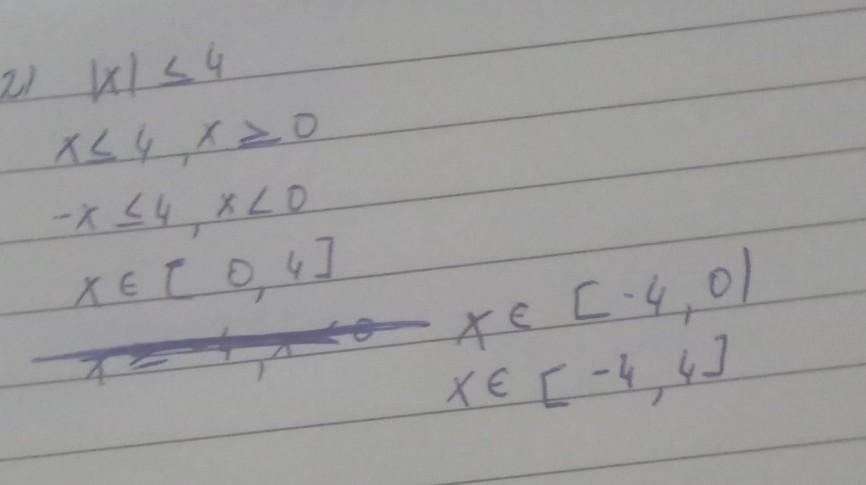 2) |x| ≤ 4
x ≤ 4, x ≥ 0
-x ≤ 4, x < 0
x ∈ [0, 4]
x ∈ [-4, 0)
x ∈ [-4, 4]